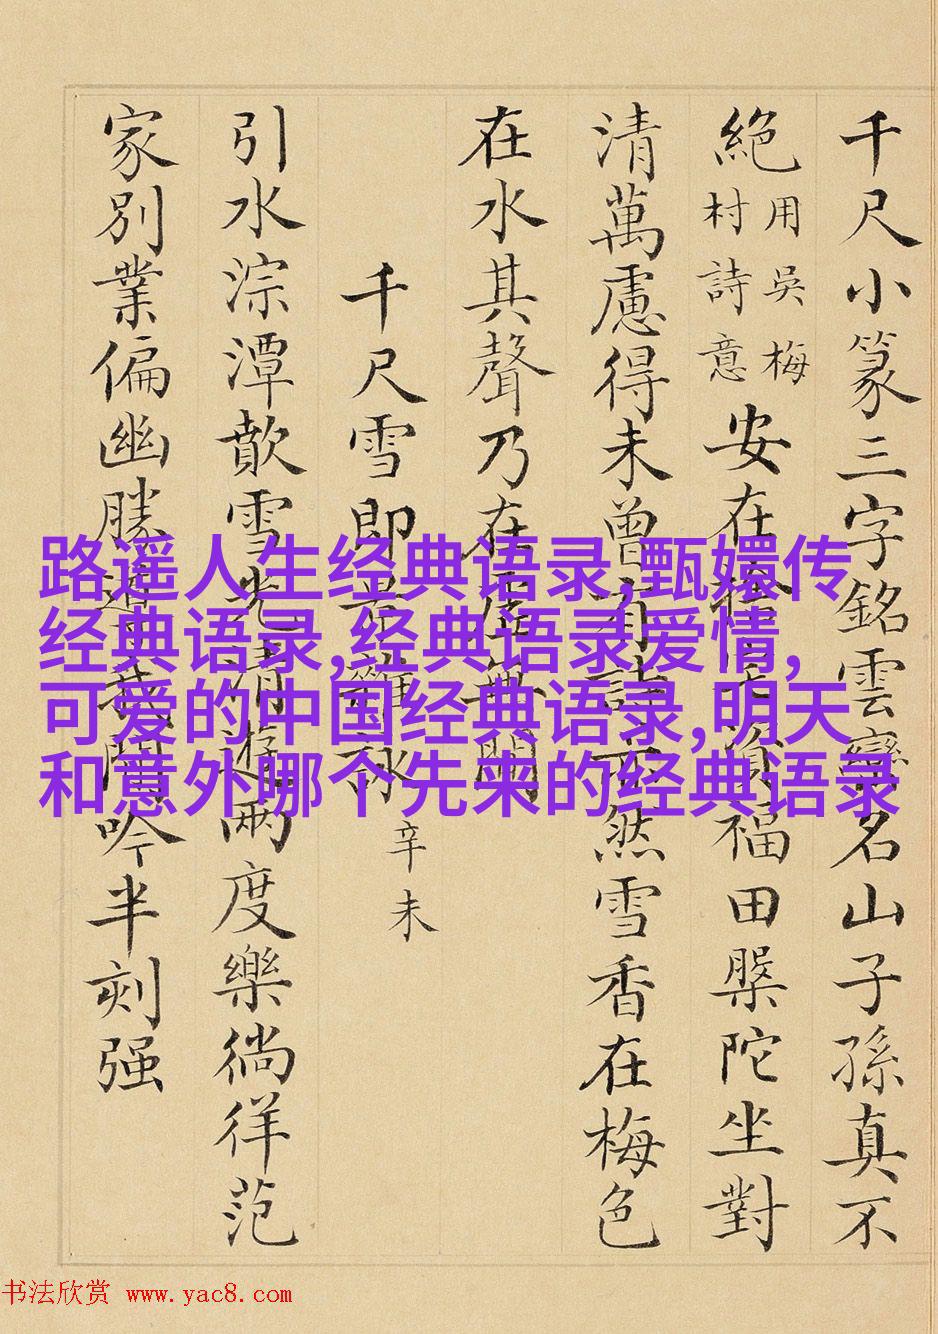 千尺小篆三字銘雲巒名山子孫真不
絕
用吳梅
村詩意
安在福田槃陀坐對
清萬慮得未曾有詩不然雪香在梅色
在水其聲乃在虛無間
千尺雪即景雜詠
辛未
引水淙潭歕雪光清遊兩度樂徜徉范
家別業偏幽勝閒吟半刻强
路遥人生经典语录,甄嬛传
经典语录,经典语录爱情,
可爱的中国经典语录,明天
和意外哪个先来的经典语录
书法欣赏 www.yac8.com